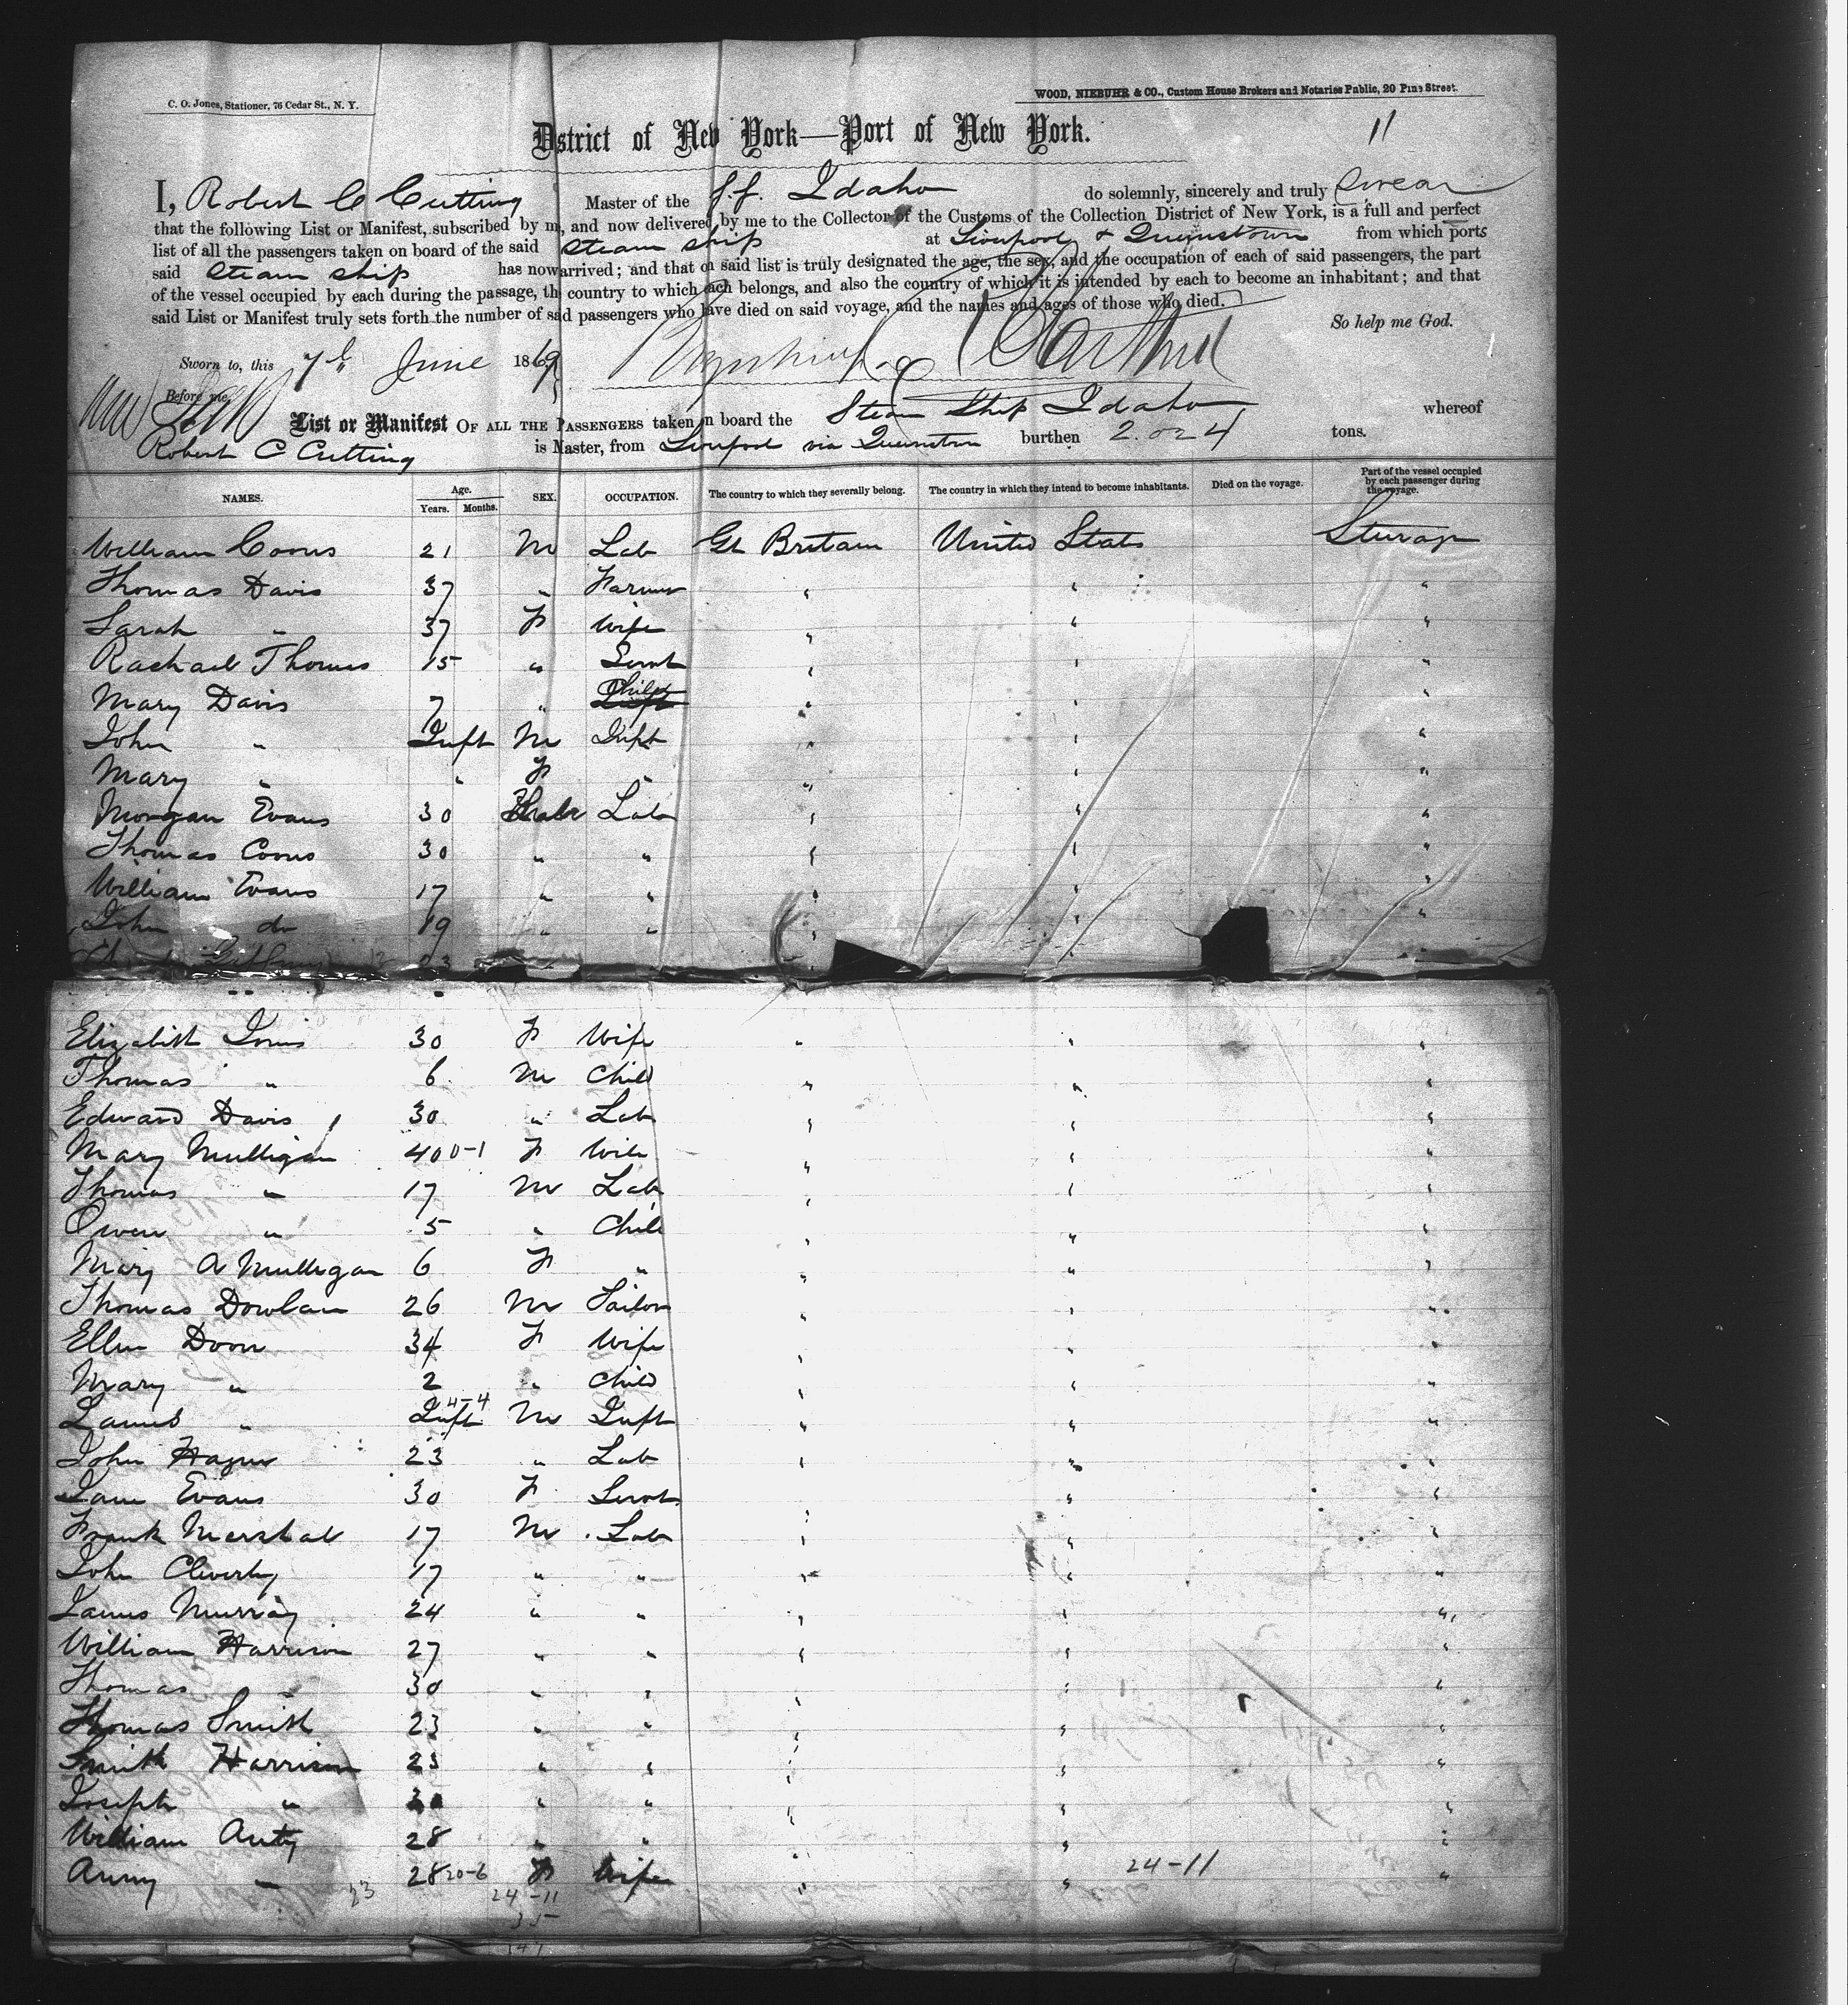 C. O. Jones, Stationer, 76 Cedar St., N. Y.
WOOD, NIEBUHR & CO., Custom House Brokers and Notaries Public, 20 Pine Street.
District of New York—Port of New York.
11
I, Robert C Cutting Master of the S.S. Idaho do solemnly, sincerely and truly Swear
that the following List or Manifest, subscribed by m, and now delivered by me to the Collector of the Customs of the Collection District of New York, is a full and perfect
list of all the passengers taken on board of the said Steam ship at Liverpool & Queenstown from which ports
said Steam ship has now arrived; and that on said list is truly designated the age, the sex, and the occupation of each of said passengers, the part
of the vessel occupied by each during the passage, th country to which each belongs, and also the country of which it is intended by each to become an inhabitant; and that
said List or Manifest truly sets forth the number of said passengers who have died on said voyage, and the names and ages of those who died.
So help me God.
Sworn to, this 7th June 1869
Before me,
List or Manifest OF ALL THE PASSENGERS taken on board the Steam Ship Idaho whereof
Robert C Cutting is Master, from Liverpool via Queenstown burthen 2.024 tons.
NAMES. Age. Years. Months. SEX. OCCUPATION. The country to which they severally belong. The country in which they intend to become inhabitants. Died on the voyage. Part of the vessel occupied by each passenger during the voyage.
William 21 M Lab Gt Britain United States Sturage
Thomas Davis 37 " Farmer " " "
Sarah " 37 F Wife " " "
Rachael Thomas 15 " Servt " " "
Mary Davis 7 " Child " " "
John " Inft M Inft " " "
Mary " " F " " " "
Morgan Evans 30 Lab " " "
Thomas 30 " " " " "
William Evans 17 " " " " "
John do 19 " " " " "
23
Elizabeth 30 F Wife " " "
Thomas " 6 M Child " " "
Edward Davis 30 " Lab " " "
Mary Mulligan 40 0-1 F Wife " " "
Thomas " 17 M Lab " " "
Owen " 5 " Child " " "
Mary A Mulligan 6 F " " " "
Thomas Dowlan 26 M Tailor " " "
Ellen Doon 34 F Wife " " "
Mary " 2 " Child " " "
James " Inft 4-4 M Inft " " "
John 23 " Lab " " "
Jane Evans 30 F Servt " " "
Frank Marshal 17 M Lab " " "
John Cleverly 17 " " " " "
James Murray 24 " " " " "
William Harrison 27 " " " " "
Thomas " 30 " " " " "
Thomas Smith 23 " " " " "
Smith Harrison 23 " " " " "
Joseph " " " " " "
William Auty 28 " " " " "
Anny " 28 20-6 F Wife " " "
24-11
23 24-11
35